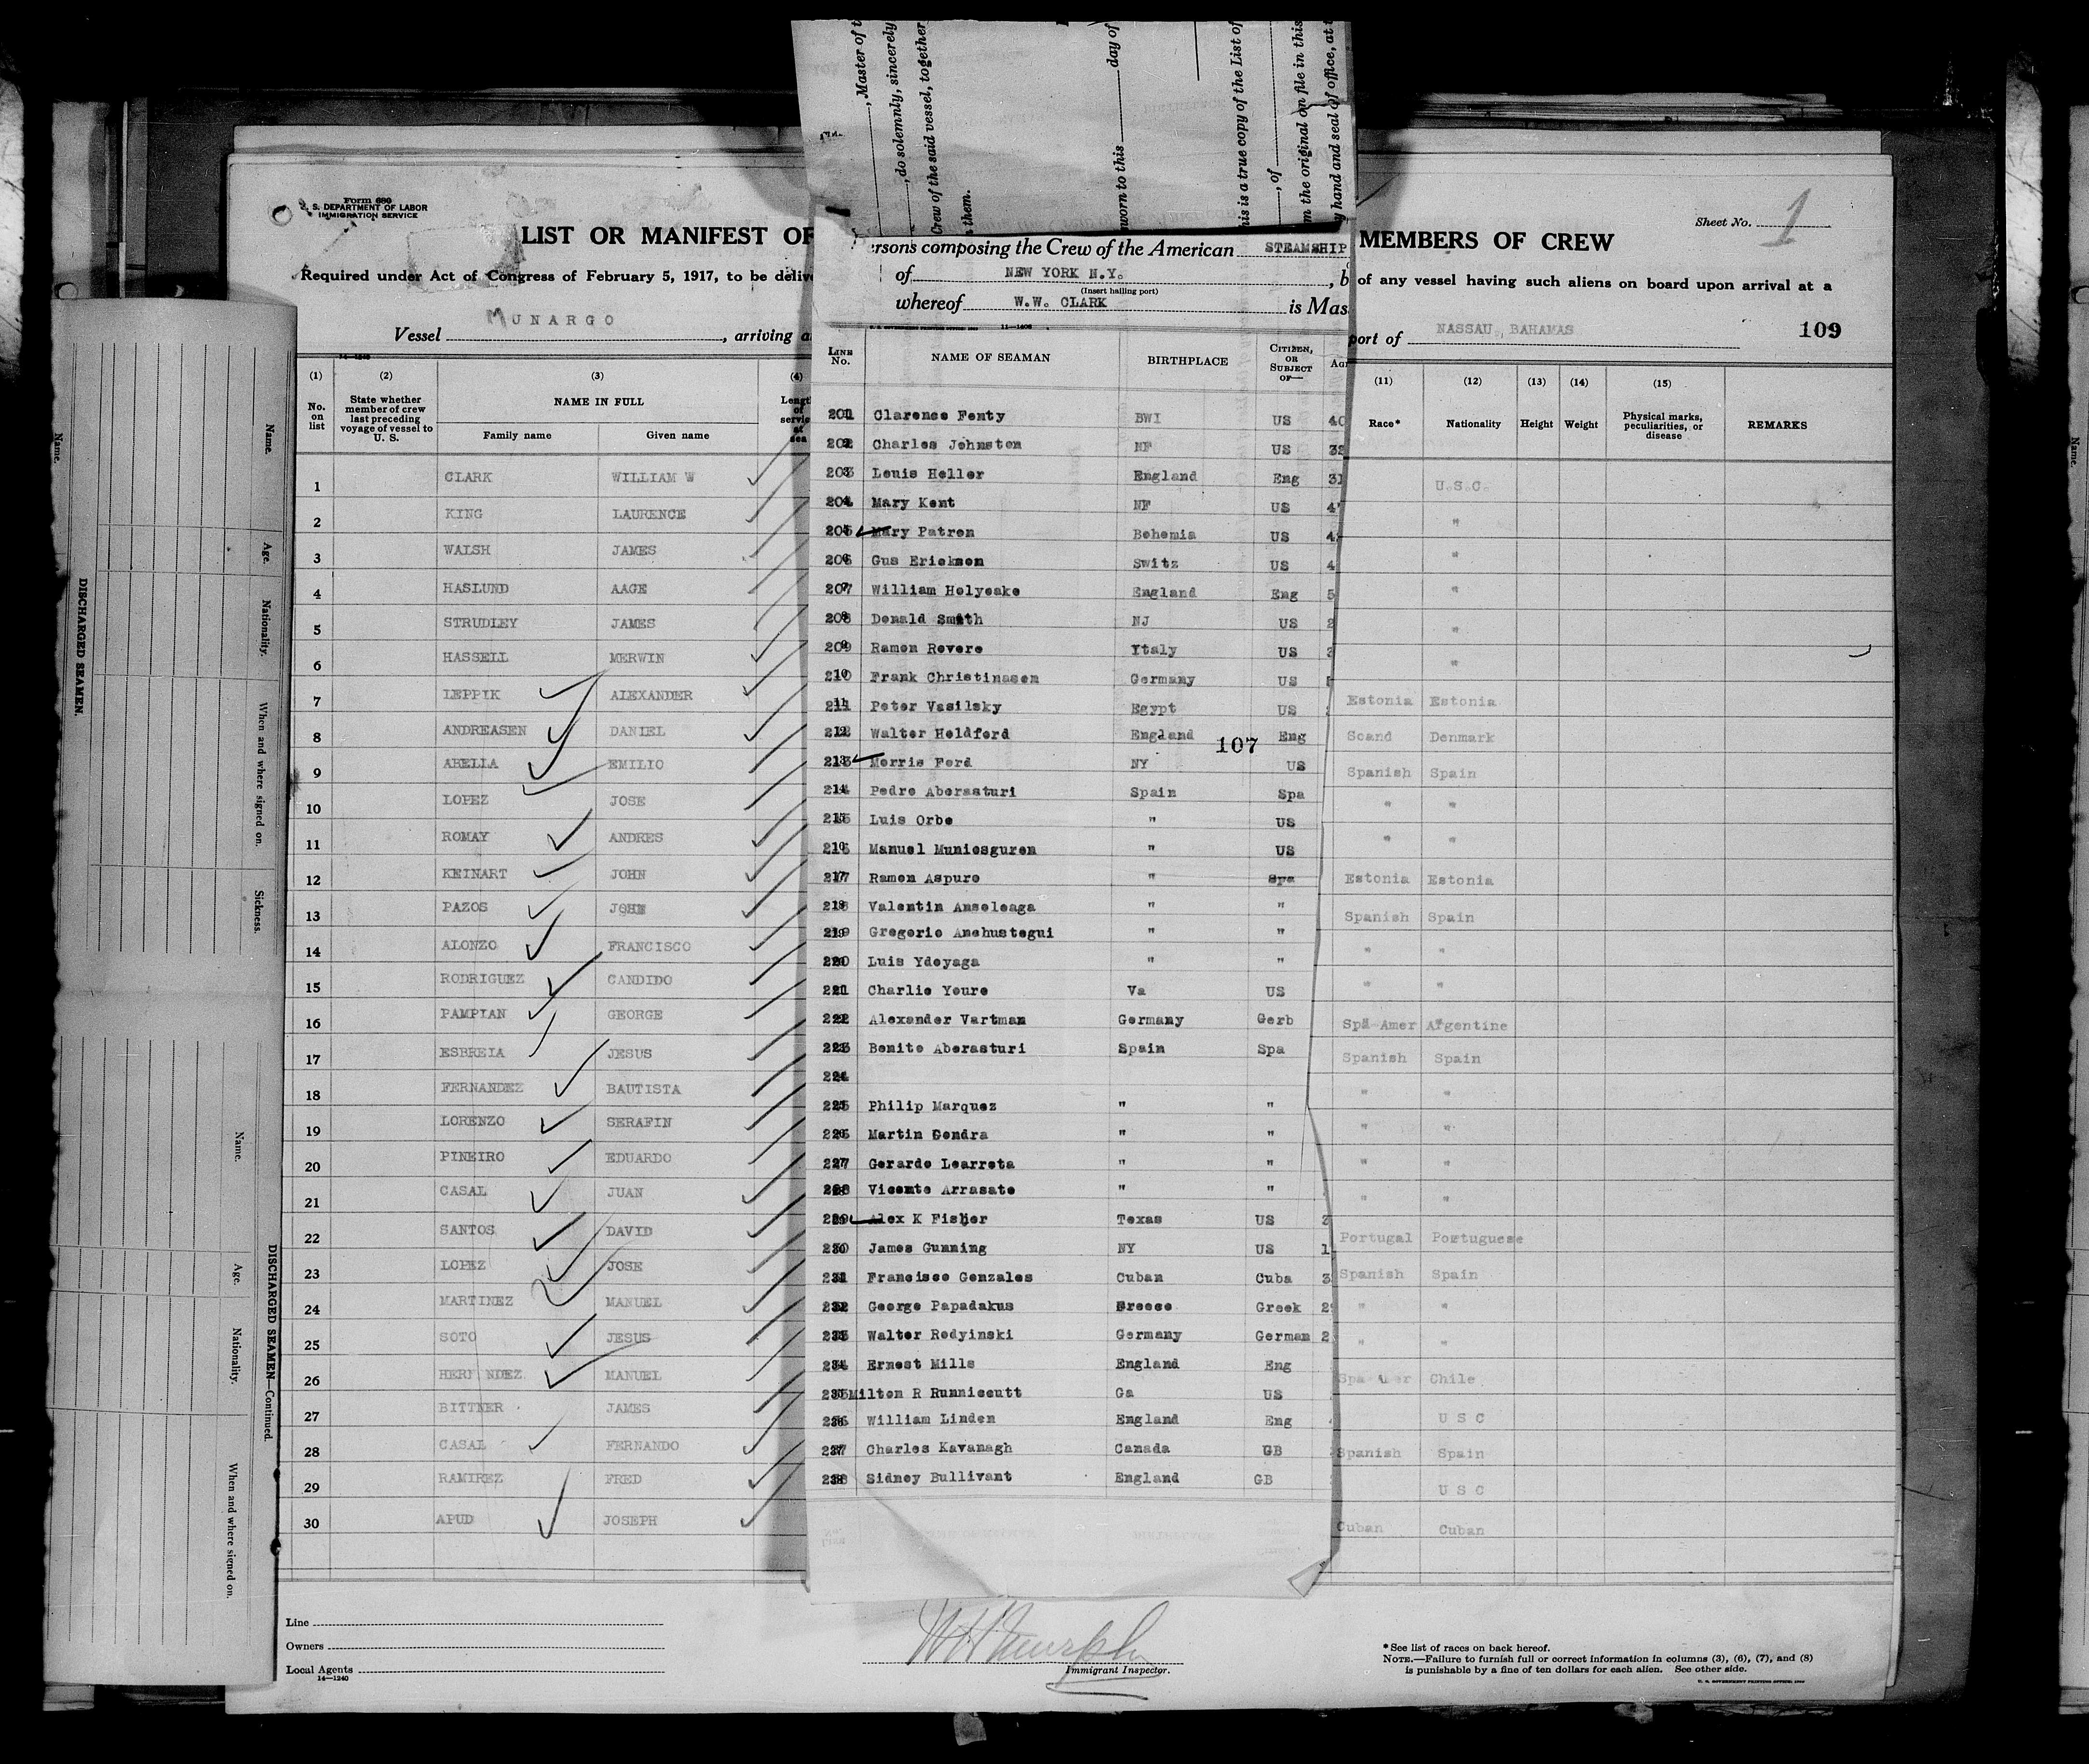 Form 680
U. S. DEPARTMENT OF LABOR
IMMIGRATION SERVICE
LIST OR MANIFEST OF
Required under Act of Congress of February 5, 1917, to be delive
Vessel MUNARGO, arriving a
(1) (2) (3) (4)
No. on list
State whether member of crew last preceding voyage of vessel to U. S.
NAME IN FULL
Family name Given name
Lengt of servic at sea
1 CLARK WILLIAM W
2 KING LAURENCE
3 WALSH JAMES
4 HASLUND AAGE
5 STRUDLEY JAMES
6 HASSELL MERWIN
7 LEPPIK ALEXANDER
8 ANDREASEN DANIEL
9 ABELLA EMILIO
10 LOPEZ JOSE
11 ROMAY ANDRES
12 KEINART JOHN
13 PAZOS JOHN
14 ALONZO FRANCISCO
15 RODRIGUEZ CANDIDO
16 PAMPIAN GEORGE
17 ESBREIA JESUS
18 FERNANDEZ BAUTISTA
19 LORENZO SERAFIN
20 PINEIRO EDUARDO
21 CASAL JUAN
22 SANTOS DAVID
23 LOPEZ JOSE
24 MARTINEZ MANUEL
25 SOTO JESUS
26 HERN NDEZ MANUEL
27 BITTNER JAMES
28 CASAL FERNANDO
29 RAMIREZ FRED
30 APUD JOSEPH
Line
Owners
Local Agents
14—1240
, Master of t
, do solemnly, sincerely
Crew of the said vessel, together
them.
worn to this day of
his is a true copy of the List of
, of
m the original on file in this
y hand and seal of office, at t
rsons composing the Crew of the American STEAMSHIP
of NEW YORK N.Y. , b
(Insert hailing port)
whereof W.W. CLARK is Mas
LINE No. NAME OF SEAMAN BIRTHPLACE CITIZEN, OR SUBJECT OF—
201 Clarence Fenty BWI US 40
202 Charles Johnston NF US 32
203 Louis Heller England Eng 31
204 Mary Kent NF US 4
205 Mary Patron Bohemia US 4
206 Gus Erickson Switz US 4
207 William Holyoake England Eng 5
208 Donald Smith NJ US 2
209 Ramon Revere Italy US
210 Frank Christinasen Germany US
211 Peter Vasilsky Egypt US
212 Walter Holdford England Eng
107
213 Morris Ford NY US
214 Pedro Aberasturi Spain Spa
215 Luis Orbe " US
216 Manuel Muniosguren " US
217 Ramon Aspuro " Spa
218 Valentin Ansoleaga " "
219 Gregorio Anchustegui " "
220 Luis Ydoyaga " "
221 Charlie Youre Va US
222 Alexander Vartman Germany Gerb
223 Benito Aberasturi Spain Spa
224
225 Philip Marquez " "
226 Martin Gondra " "
227 Gerardo Learreta " "
228 Vicente Arrasate " "
229 Alex K Fisher Texas US
230 James Gunning NY US 1
231 Francisco Gonzales Cuban Cuba 3
232 George Papadakus Greece Greek 2
233 Walter Redyinski Germany German 2
234 Ernest Mills England Eng
235 Milton R Runniscutt Ga US
236 William Linden England Eng
237 Charles Kavanagh Canada GB
238 Sidney Bullivant England GB
Immigrant Inspector.
Sheet No. 1
MEMBERS OF CREW
of any vessel having such aliens on board upon arrival at a
port of NASSAU, BAHAMAS 109
(11) (12) (13) (14) (15)
Race* Nationality Height Weight Physical marks, peculiarities, or disease REMARKS
U.S.C.
"
"
"
"
"
Estonia Estonia
Scand Denmark
Spanish Spain
" "
" "
Estonia Estonia
Spanish Spain
" "
" "
Spa-Amer Argentine
Spanish Spain
" "
" "
" "
" "
Portugal Portuguese
Spanish Spain
" "
" "
Spa Chile
U S C
Spanish Spain
U S C
Cuban Cuban
*See list of races on back hereof.
NOTE.—Failure to furnish full or correct information in columns (3), (6), (7), and (8)
is punishable by a fine of ten dollars for each alien. See other side.
Name. Age. Nationality. When and where signed on. Sickness.
DISCHARGED SEAMEN.
Name. Age. Nationality. When and where signed on.
DISCHARGED SEAMEN—Continued.
Name.
Name.